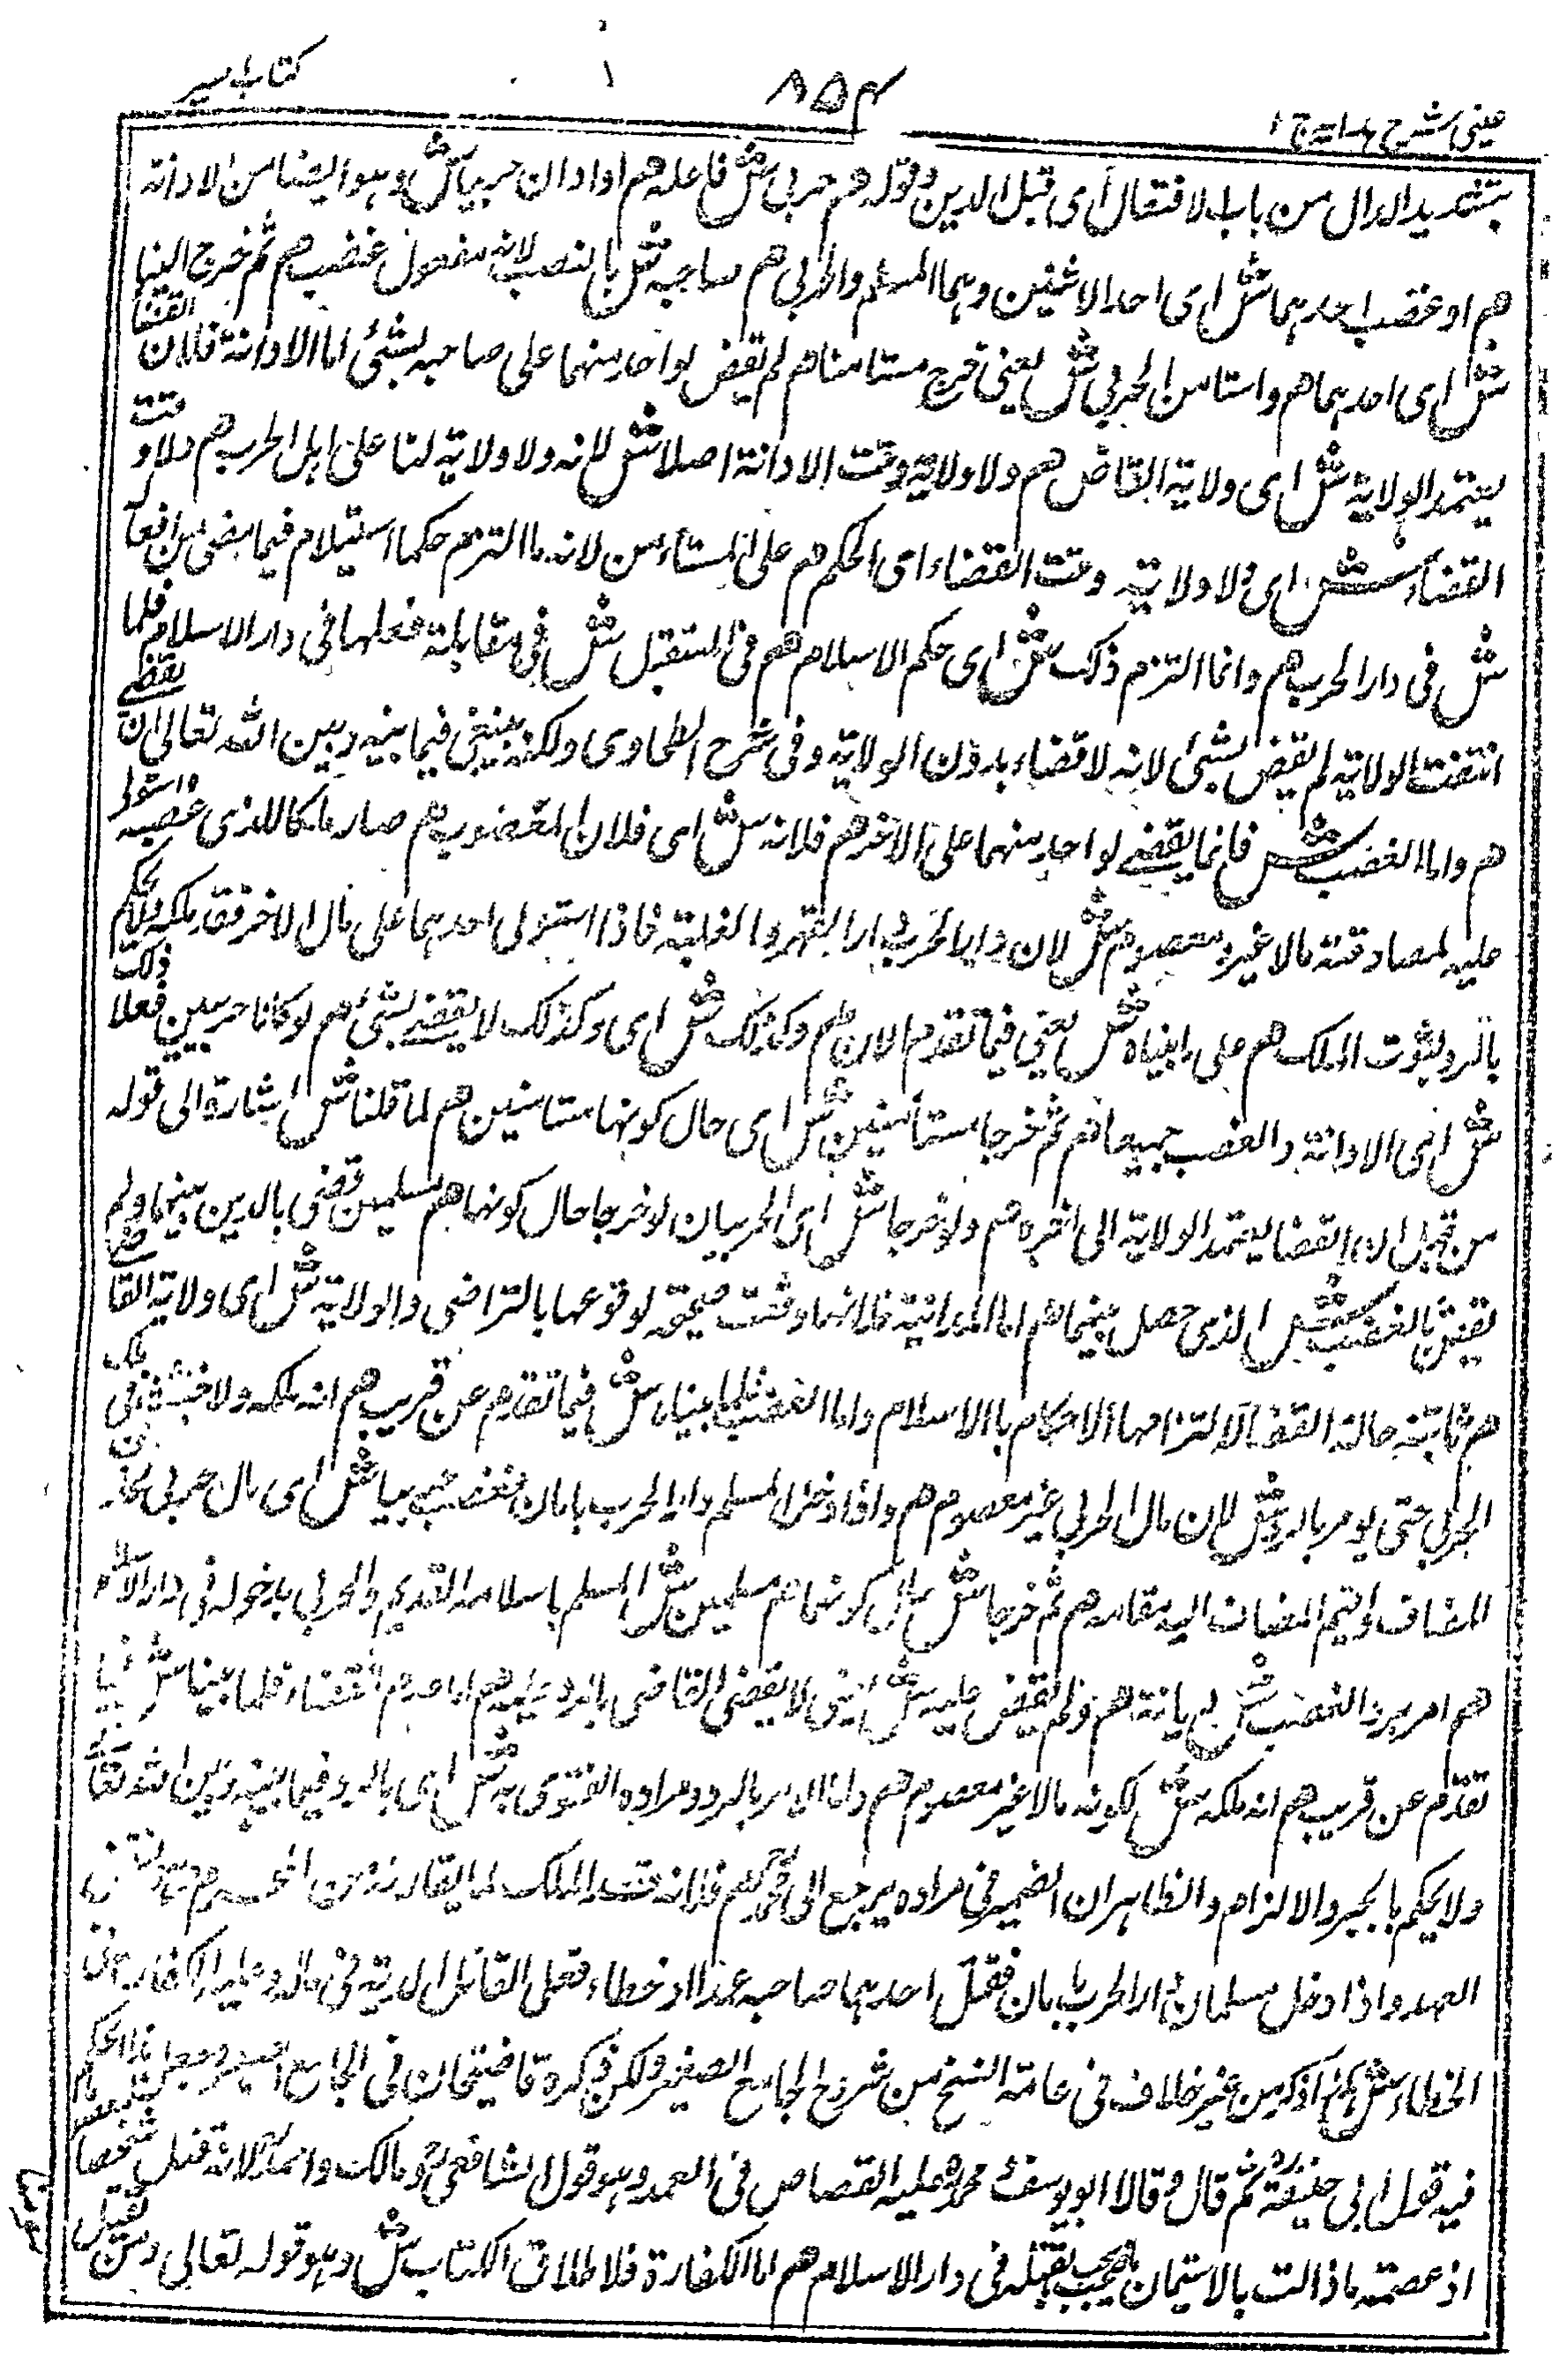 كتاب السير
٨٥٤
عينى شرح هداية ج ١
بتشديد الدال من باب الافتعال أى قبل الدين وقوله هم حربى ش فاعله هم اوادان حربيا ش وهو ايضا من الادانة
هم او غصب احدهما ش اى احد الاثنين وهما المسلم والحربى هم صاحبه ش بالنصب لانه مفعول غضب هم ثم خرج الينا
ش اى احدهما هم واستامن الحربى ش يعنى خرج مستامنا هم لم يقض لواحد منهما على صاحبه بشئ اما الادانة فلان القضا
يعتمد الولاية ش اى ولاية القاض هم ولا ولاية وقت الادانة اصلا ش لانه ولا ولاية لنا على اهل الحرب هم ولا وقت
القضاء ش اى ولا ولاية وقت القضاء اى الحكم هم على المستأمن لانه ما التزم حكم الاسلام فيما مضى من افعاله
ش فى دار الحرب هم وانما التزم ذلك ش اى حكم الاسلام هم فى المستقبل ش فى مقابلة فعلها فى دار الاسلام فلما
انتفت الولاية لم يقض بشئ لانه لا قضاء بدون الولاية وفى شرح الطحاوى ولكنه ينبغى فيما بينه وبين الله تعالى ان يقضى
هم واما الغضب ش فانما يقضى لواحد منهما على الآخر هم فلانه ش اى فلان المغضوب هم صار ملكا للذى غصبه واستولى
عليه لمصادفته مالا غير معصوم ش لان دار الحرب دار القهر والغلبة فاذا استولى احدهما على مال الاخر فقد ملكه ولا يحكم
بالرد لثبوت الملك هم على ما بيناه ش يعنى فيما تقدم الان هم وكذلك ش اى وكذلك لا يقضى بشئ هم لو كانا حربيين فعلا ذلك
ش اى الادانة والغصب جميعا هم ثم خرجا مستأمنين ش اى حال كونهما مستامنين هم لما قلنا ش اشارة الى قوله
من قبل ان القضا يعتمد الولاية الى اخره هم ولو خرجا ش اى الحربيان لو خرجا حال كونهما هم مسلمين قضى بالدين بينهما ولم
يقض بالغضب ش الذى حصل بينهما هم اما المداينة فلانها وقعت صحيحة لوقوعها بالتراضى والولاية ش اى ولاية القاضى
هم ثابتة حالة القضاء لالتزامهما الاحكام بالاسلام واما الغضب فلما بيناه ش فيما تقدم عن قريب هم انه ملكه ولا خبث فى ملك
الحربى حتى يومر بالرد ش لان مال الحربى غير معصوم هم واذا دخل المسلم دار الحرب بامان فغصب حربيا ش اى مال حربى
المضاف واقيم المضاف اليه مقامه هم ثم خرجا ش حال كونهما هم مسلمين ش المسلم باسلامه القديم والحربى بدخوله فى دار الاسلام
هم امر برد الغضب ش ديانة هم ولم يقض عليه ش يعنى لا يقضى القاضى بالرد عليه هم اما عدم القضاء فلما بينا ش فيما
تقدم عن قريب هم انه ملكه ش لكونه مالا غير معصوم هم واما الامر بالرد ومراده الفتوى به ش اى بالرد فيما بينه وبين الله تعالى
ولا يحكم بالجبر والالزام والظاهر ان الضمير فى مراده يرجع الى محمد هم فلانه فسد الملك لما يقارنه من المحرم وهو نقض
العهد واذا دخل مسلمان دار الحرب بامان فقتل احدهما صاحبه عمدا او خطاء فعلى القاتل الدية فى ماله وعليه الكفارة فى
الخطاء ش هكذا ذكر من غير خلاف فى عامة النسخ من شروح الجامع الصغير ولكن ذكره قاضيخان فى الجامع الصغير وجعل هذا الحكم
فيه قول ابى حنيفة ثم قال وقالا ابو يوسف ومحمد عليه القصاص فى العمد وهو قول الشافعى ومالك واحمد لانه قتل شخصا
اذ عصمته ما زالت بالاستيمان فيجب بقتله فى دار الاسلام هم اما الكفارة فلاطلاق الكتاب ش وهو قوله تعالى ومن قتل